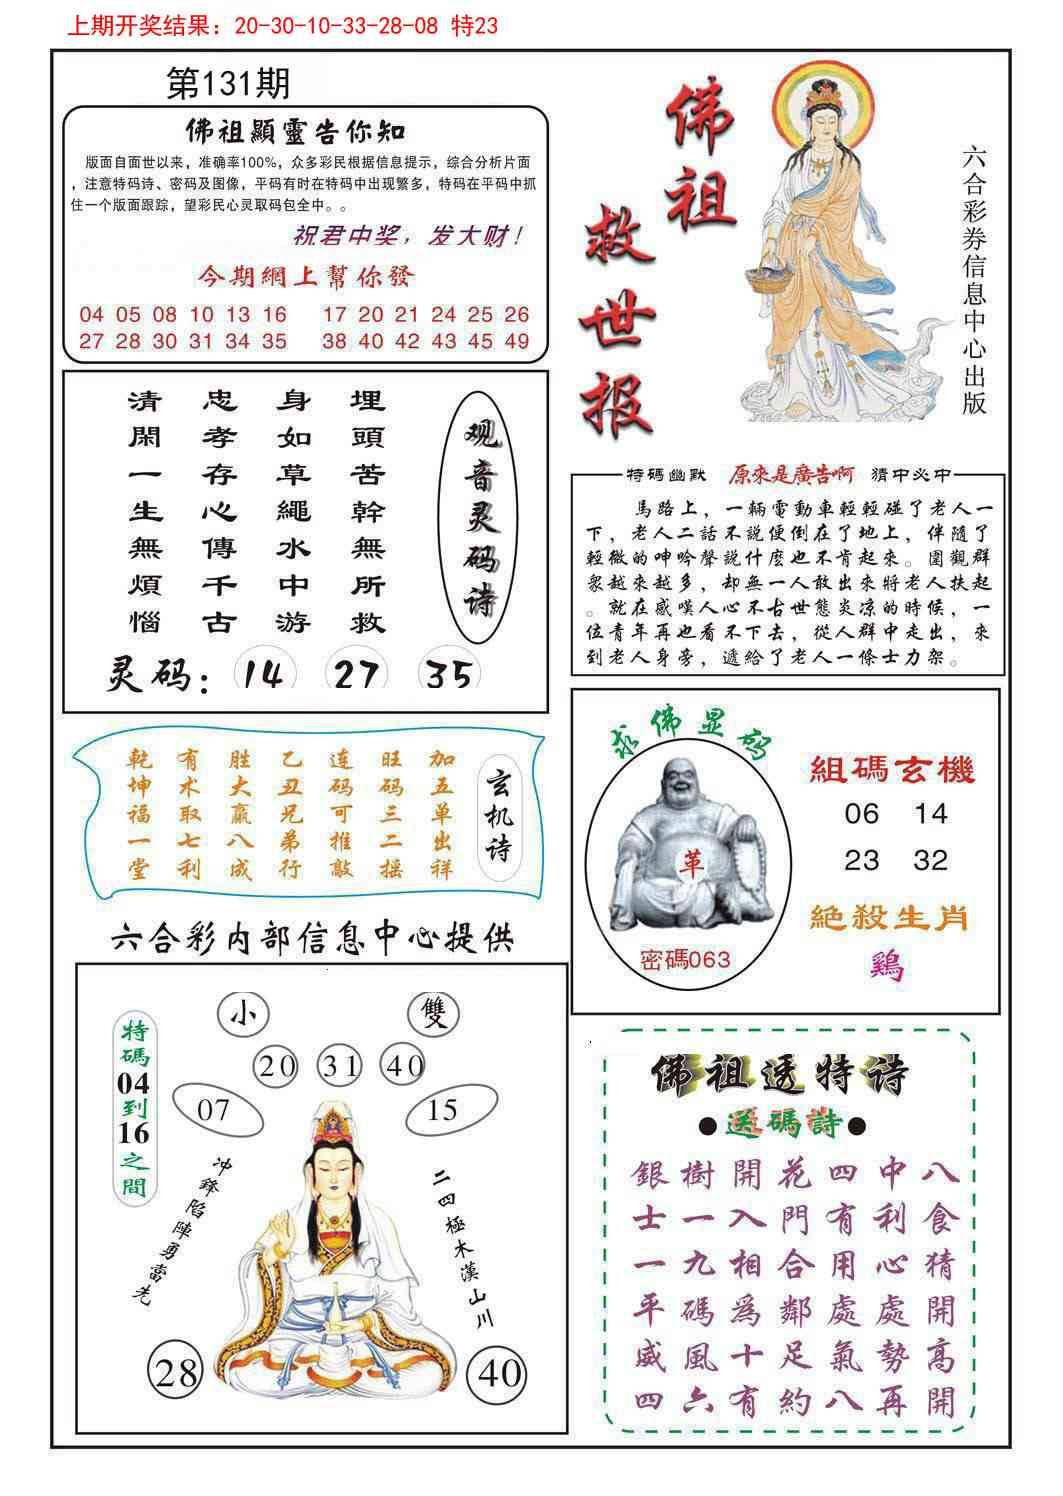 上期开奖结果：20-30-10-33-28-08 特23
第131期
佛祖顯靈告你知
版面自面世以来，准确率100%，众多彩民根据信息提示，综合分析片面
，注意特码诗、密码及图像，平码有时在特码中出现繁多，特码在平码中抓
住一个版面跟踪，望彩民心灵取码包全中。。
祝君中奖，发大财！
今期網上幫你發
04 05 08 10 13 16 17 20 21 24 25 26
27 28 30 31 34 35 38 40 42 43 45 49
佛祖
救世报
六合彩券信息中心出版
清閑一生無煩惱
忠孝存心傳千古
身如草繩水中游
埋頭苦幹無所救
观音灵码诗
灵码：14 27 35
特碼幽默 原來是廣告啊 猜中必中
馬路上，一輛電動車輕輕碰了老人一
下，老人二話不說便倒在了地上，伴隨了
輕微的呻吟聲説什麼也不肯起來。圍觀群
衆越來越多，却無一人敢出來將老人扶起
。就在感嘆人心不古世態炎凉的時候，一
位青年再也看不下去，從人群中走出，來
到老人身旁，遞給了老人一條士力架。
乾坤福一堂
有术取七利
胜大赢八成
乙丑兄弟行
连码可推敲
旺码三二摇
加五单出祥
玄机诗
六合彩内部信息中心提供
求佛显码
革
密碼063
組碼玄機
06 14
23 32
絶殺生肖
鷄
小 雙
特碼04到16之間
20 31 40
07 15
冲鋒陷陣勇當先
二四極木漢山川
28 40
佛祖透特诗
●送碼詩●
銀樹開花四中八
士一入門有利食
一九相合用心猜
平碼爲鄰處處開
威風十足氣勢高
四六有約八再開